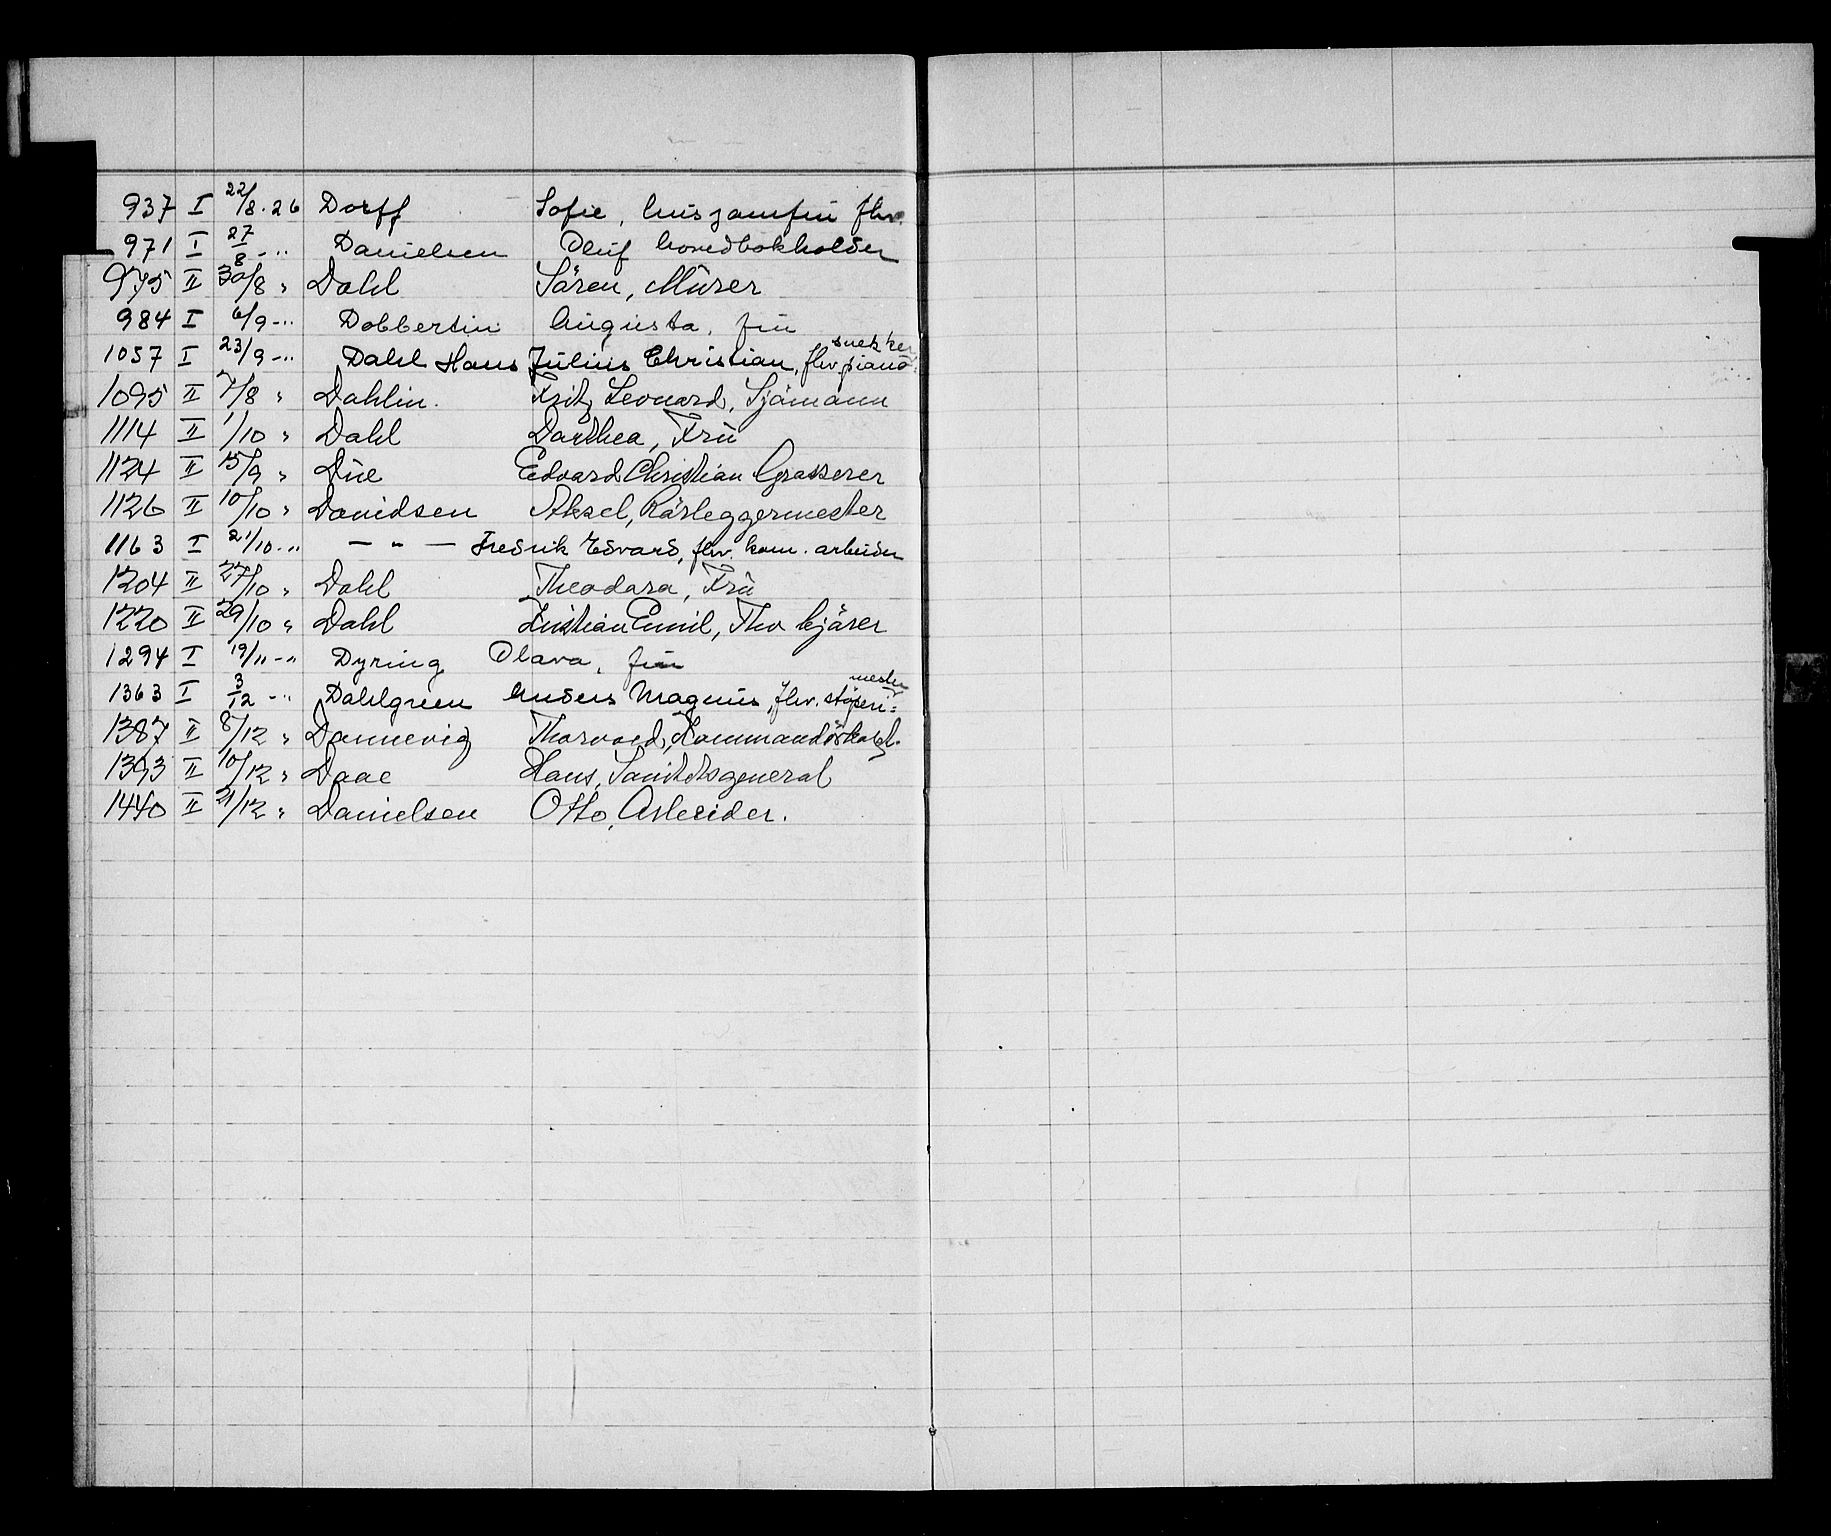 937 I 22/8.26 Dorff Sofie, husjomfru fhv.
971 I 27/8 -"- Danielsen Oluf hovedbokholder
975 II 30/8 " Dahl Sören, Murer
984 I 6/9 -"- Dobbertin Augusta, fru
1057 I 23/9 -"- Dahl Hans Julius Christian, fhv. piano= snekker
1095 II 7/8 " Dahlin. Fritz Leonard, Sjömann
1114 II 1/10 " Dahl Dorthea, Frü
1124 II 15/9 " Düe Edvard Christian Grosserer
1126 II 10/10 " Davidsen Aksel, Rörleggermester
1163 I 21/10 -"- — " — Fredrik Edvard, fhv. kom. arbeider
1204 II 27/10 " Dahl Theodora, Frü
1220 II 29/10 " Dahl Kristian Emil, Fhv kjörer
1294 I 19/11 -"- Dyring Olava, fru
1363 I 3/12 -"- Dahlgreen Anders Magnus, fhv. støperi= mester
1387 II 8/12 " Dannevig Thorvald, Kommandörkapt.
1393 II 10/12 " Daae Hans, Sanitetsgeneral
1440 II 21/12 " Danielsen Otto, Arbeider.